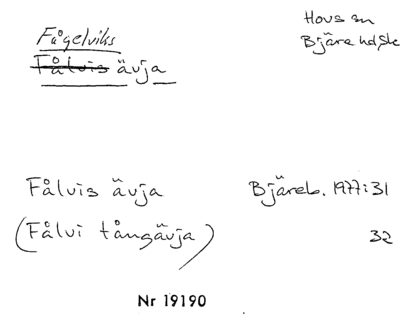 Fågelviks
Fålvis ävja
Hovs sn
Bjäre hd, Sk
Fålvis ävja
Bjäreb. 1977:31
(Fålvi tångävja)
32
Nr 19190